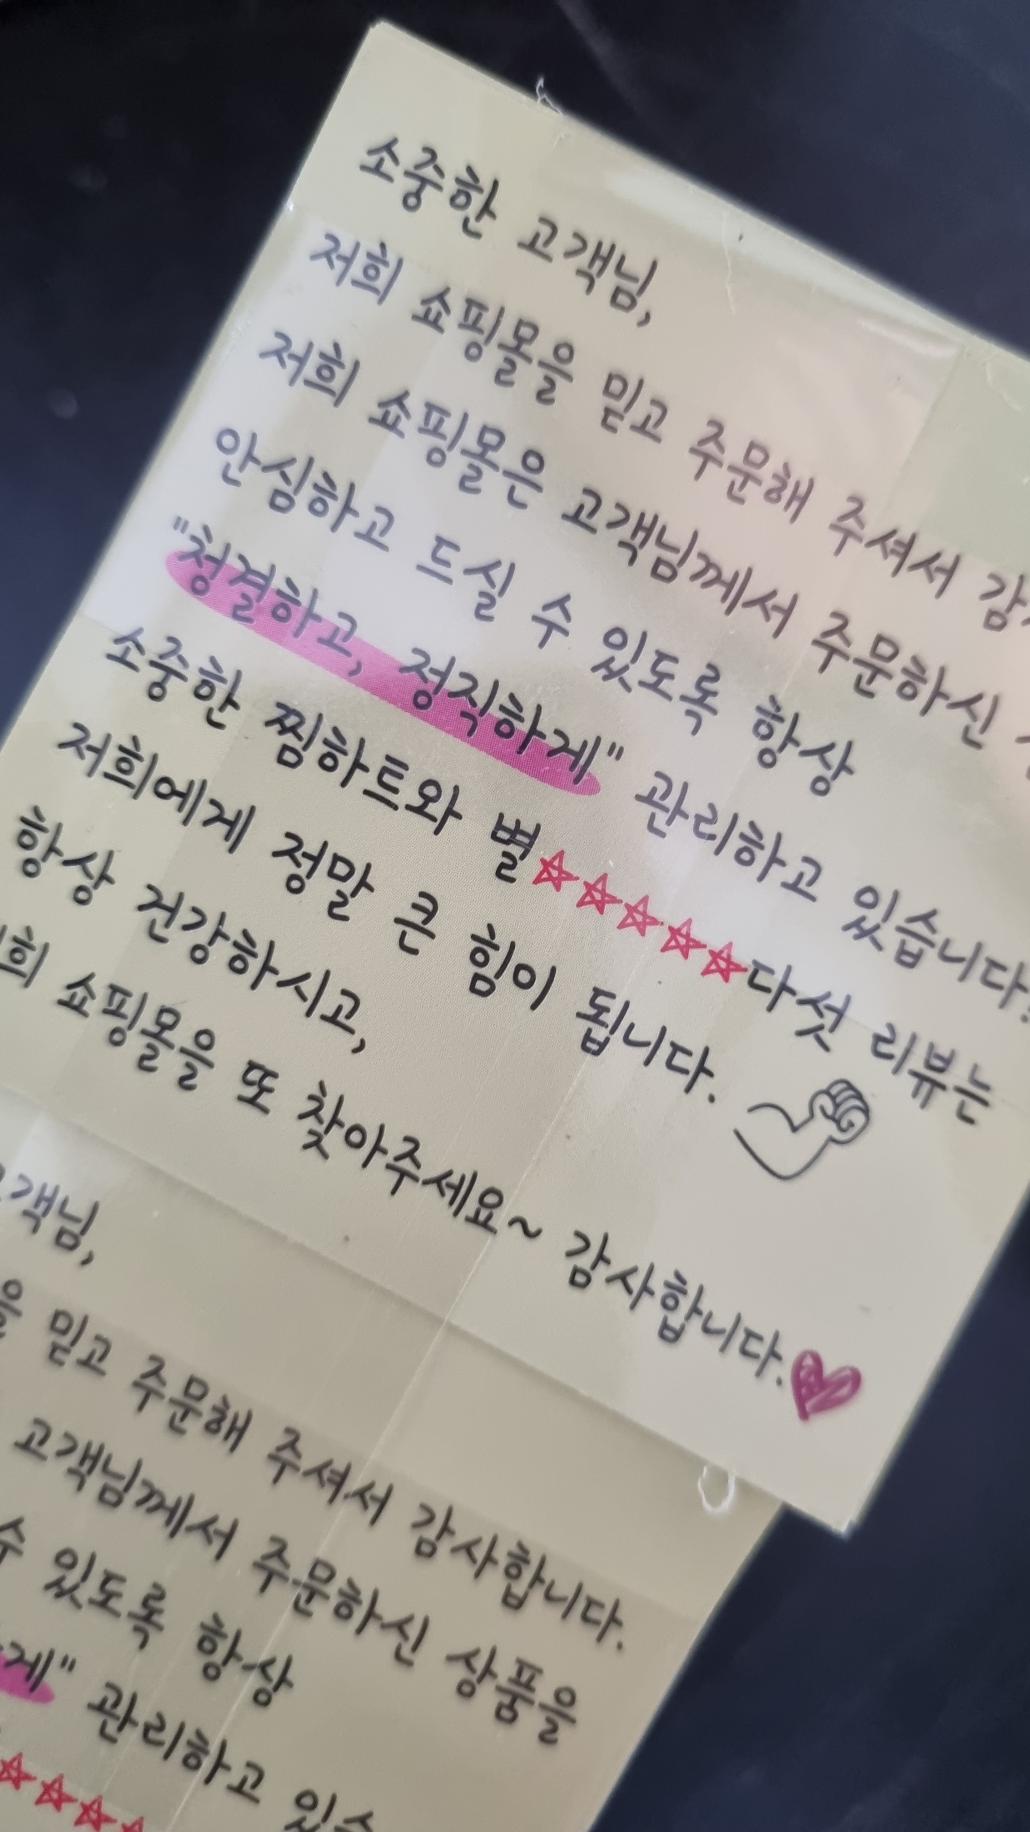 소중한 고객님,
저희 쇼핑몰을 믿고 주문해 주셔서
저희 쇼핑몰은 고객님께서 주문하신
안심하고 드실 수 있도록 항상
"청결하고, 정직하게" 관리하고 있습니다.
소중한 찜하트와 별☆☆☆☆☆다섯 리뷰는
저희에게 정말 큰 힘이 됩니다.
항상 건강하시고,
쇼핑몰을 또 찾아주세요~ 감사합니다.
믿고 주문해 주셔서 감사합니다.
고객님께서 주문하신 상품을
수 있도록 항상
관리하고